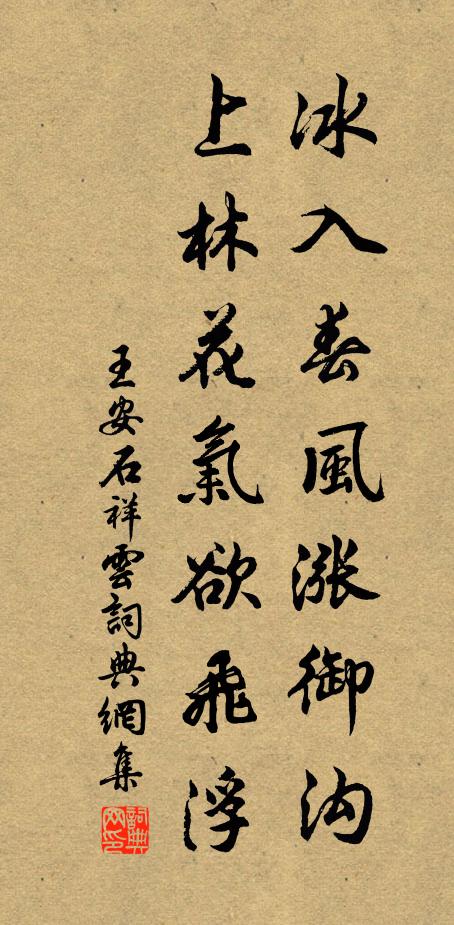 冰入春風漲御沟
上林花氣欲飛浮
王安石祥雲詞典網集
詞典
网印